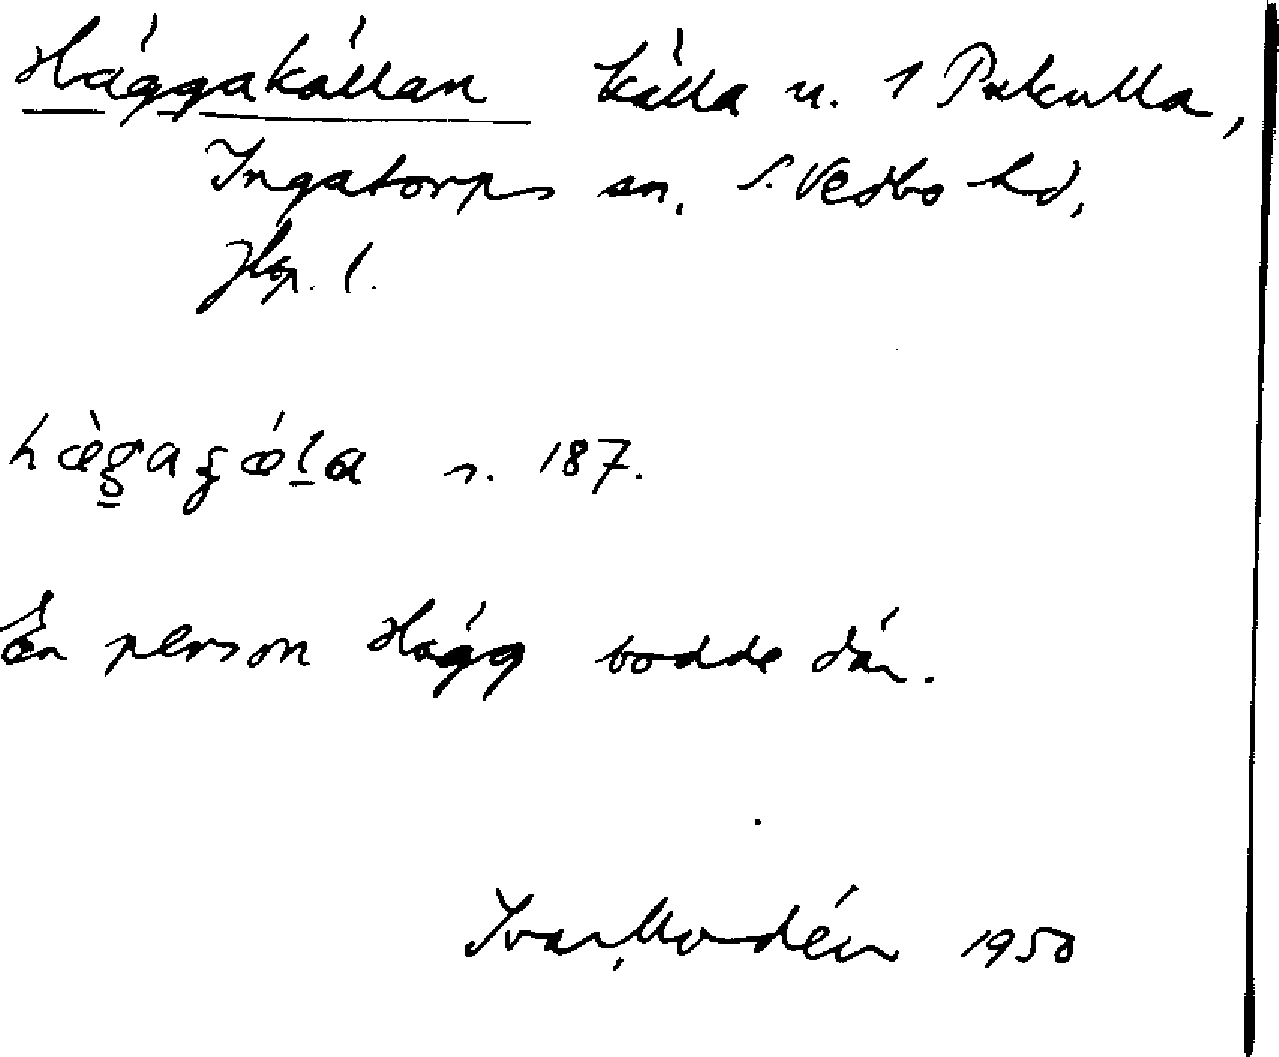 Häggakällan källa u. 1 Pukulla,
Ingatorps sn, S. Vedbo hd,
Jkp. l.
hæ̀gagǽla s. 187.
En person Hägg bodde där.
Ivar Modéer 1950